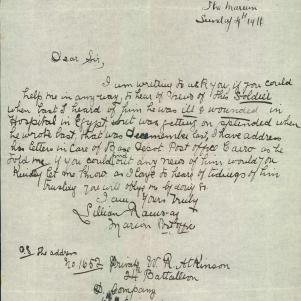 The Marcun
Sunday 4th 1916
Dear Sir,
I am writing to ask you if you could
help me in anyway, to hear of news of this Soldier
when last I heard of him he was ill & wounded in
Hospital in Egypt but was getting on splended when
he wrote last that was Decemember last, I have address
his letters in Care of Base Depot Post office Cairo as he
told me if you could find out any news of him would you
kindly let me know as I love to hear of tidings of him
trusting you will oblige me by doing so
I am Yours Truly
Lillian Ramsay
Marcun P. Office
P.S. The address
No 1652 Private W. R. Atkinson
24 Battallion
D. Company